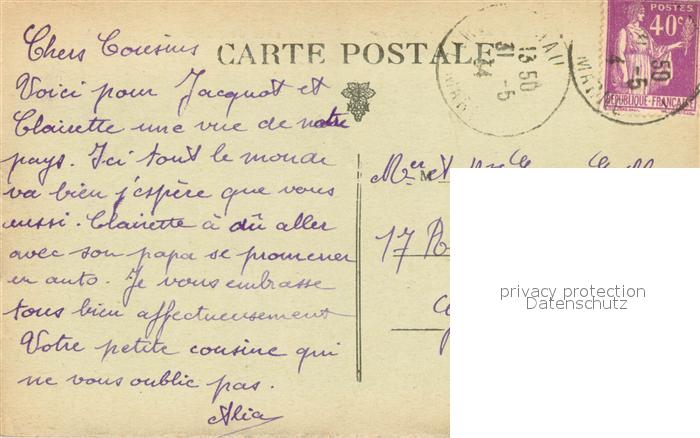 Chers Cousins
CARTE POSTALE
Voici pour Jacquot et
Clairette une vue de notre
pays. Ici tout le monde
va bien j'espère que vous
aussi. Clairette à dû aller
avec son papa se promener
en auto. Je vous embrasse
tous bien affectueusement
Votre petite cousine qui
ne vous oublie pas.
13 50
31 -5
POSTES
40c
50
-5
4
REPUBLIQUE-FRANÇAISE
Mer et
M
17
privacy protection
Datenschutz